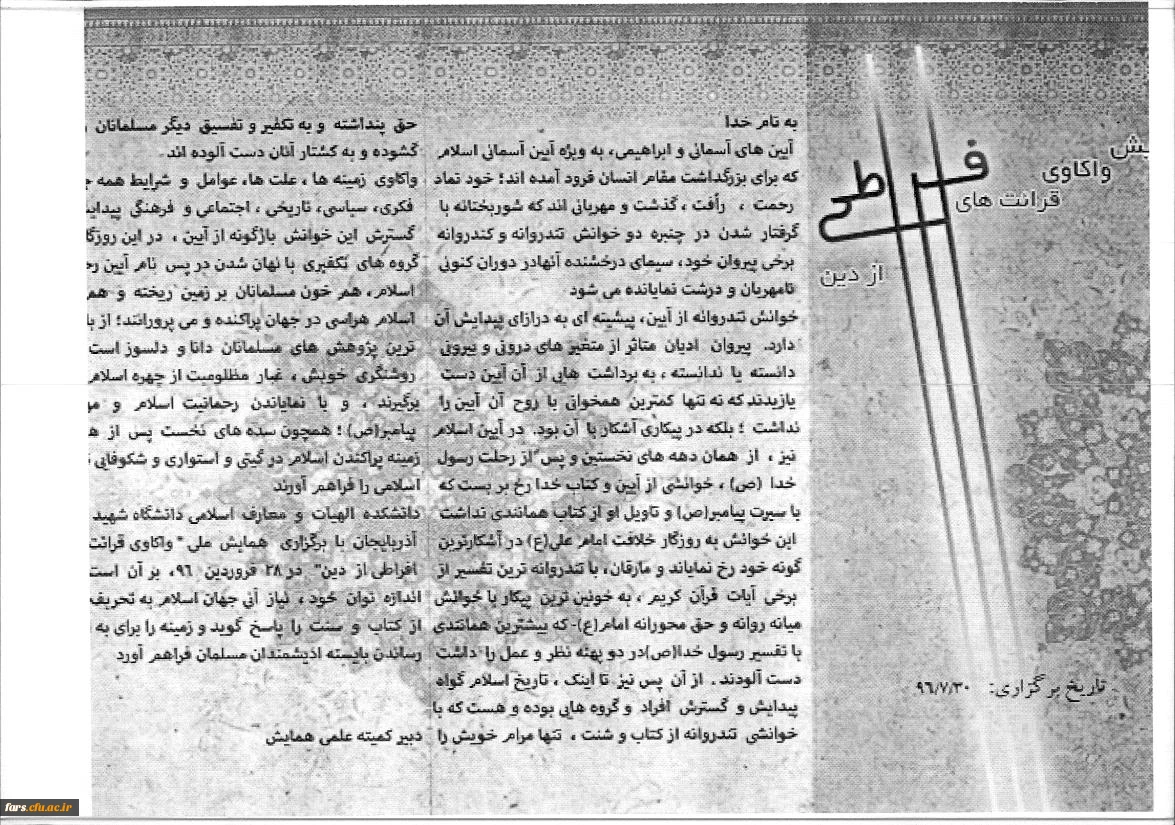 یش
واکاوی
قرائت های
افراطی
از دین
تاریخ برگزاری: ۹۶/۷/۳۰
به نام خدا
آیین های آسمانی و ابراهیمی، به ویژه آیین آسمانی اسلام
که برای بزرگداشت مقام انسان فرود آمده اند؛ خود نماد
رحمت ، رأفت ، گذشت و مهربانی اند که شوربختانه با
گرفتار شدن در چنبره دو خوانش تندروانه و کندروانه
برخی پیروان خود، سیمای درخشنده آنهادر دوران کنونی
نامهربان و درشت نمایانده می شود.
خوانش تندروانه از آیین، پیشینه ای به درازای پیدایش آن
دارد. پیروان ادیان متاثر از متغیر های درونی و بیرونی
دانسته یا ندانسته ، به برداشت هایی از آن آیین دست
یازیدند که نه تنها کمترین همخوانی با روح آن آیین را
نداشت ؛ بلکه در پیکاری آشکار با آن بود. در آیین اسلام
نیز ، از همان دهه های نخستین و پس از رحلت رسول
خدا (ص) ، خوانشی از آیین و کتاب خدا رخ بر بست که
با سیرت پیامبر(ص) و تاویل او از کتاب همانندی نداشت
این خوانش به روزگار خلافت امام علی(ع) در آشکارترین
گونه خود رخ نمایاند و مارقان، با تندروانه ترین تفسیر از
برخی آیات قرآن کریم ، به خونین ترین پیکار با خوانش
میانه روانه و حق محورانه امام(ع)- که بیشترین همانندی
با تفسیر رسول خدا(ص)در دو پهنه نظر و عمل را داشت
دست آلودند . از آن پس نیز تا اینک ، تاریخ اسلام گواه
پیدایش و گسترش افراد و گروه هایی بوده و هست که با
خوانشی تندروانه از کتاب و سنت ، تنها مرام خویش را
حق پنداشته و به تکفیر و تفسیق دیگر مسلمانان
گشوده و به کشتار آنان دست آلوده اند.
واکاوی زمینه ها ، علت ها، عوامل و شرایط همه
فکری، سیاسی، تاریخی ، اجتماعی و فرهنگی پیدایش
گسترش این خوانش باژگونه از آیین ، در این روزگا
گروه های تکفیری با نهان شدن در پس نام آیین رح
اسلام ، هم خون مسلمانان بر زمین ریخته و هم
اسلام هراسی در جهان پراکنده و می پرورانند؛ از با
ترین پژوهش های مسلمانان دانا و دلسوز است
روشنگری خویش ، غبار مظلومیت از چهره اسلام
برگیرند ، و با نمایاندن رحمانیت اسلام و مو
پیامبر(ص) ؛ همچون سده های نخست پس از
زمینه پراکندن اسلام در گیتی و استواری و شکوفایی
اسلامی را فراهم آورند
دانشکده الهیات و معارف اسلامی دانشگاه شهید
آذربایجان با برگزاری همایش ملی " واکاوی قرائت
افراطی از دین" در ۲۸ فروردین ۹۶، بر آن است
اندازه توان خود ، نیاز آنی جهان اسلام به تحریف
از کتاب و سنت را پاسخ گوید و زمینه را برای به
رساندن بایسته اندیشمندان مسلمان فراهم آورد
دبیر کمیته علمی همایش
fars.cfu.ac.ir